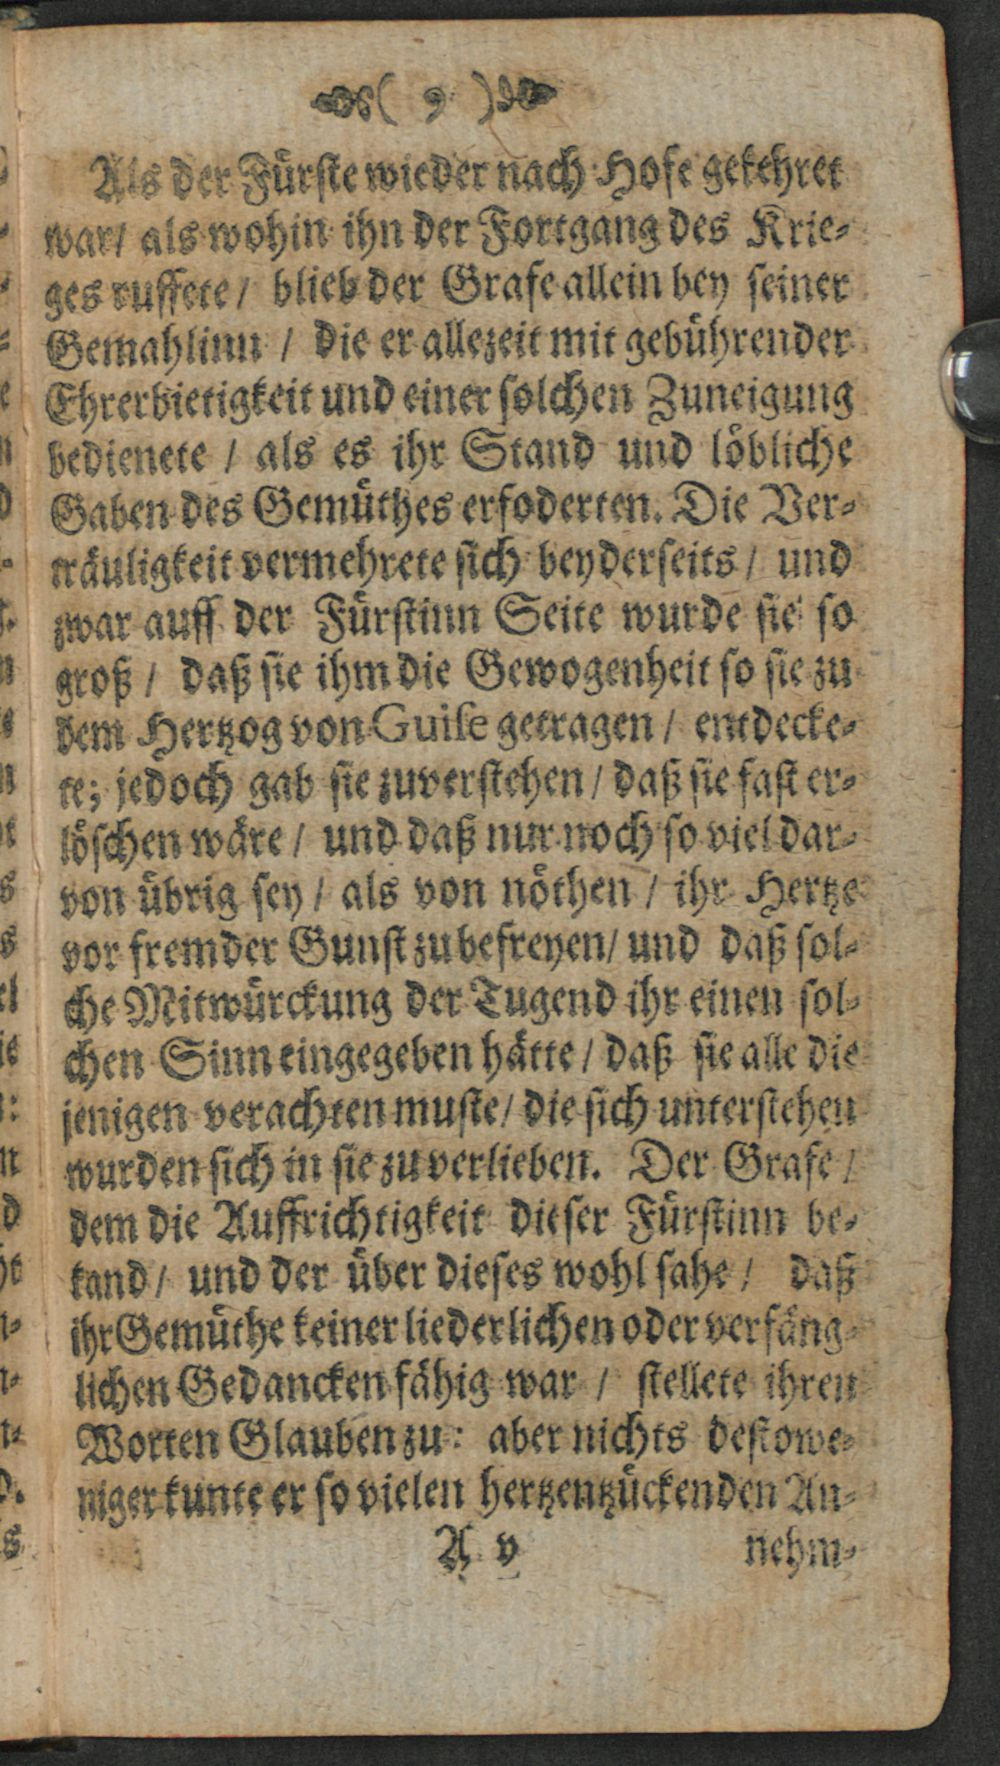 ( 9 )
Als der Fürste wieder nach Hofe gekehret
war/ als wohin ihn der Fortgang des Krie-
ges ruffete / blieb der Grafe allein bey seiner
Gemahlinn / die er allezeit mit gebührender
Ehrerbietigkeit und einer solchen Zuneigung
bedienete / als es ihr Stand und löbliche
Gaben des Gemüthes erfoderten. Die Ver-
träuligkeit vermehrete sich beyderseits / und
zwar auff der Fürstinn Seite wurde sie so
groß / daß sie ihm die Gewogenheit so sie zu
dem Hertzog von Guise getragen / entdecke-
te; jedoch gab sie zuverstehen / daß sie fast er-
löschen wäre / und daß nur noch so viel dar-
von übrig sey / als von nöthen / ihr Hertze
vor fremder Gunst zu befreyen/ und daß sol-
che Mitwürckung der Tugend ihr einen sol-
chen Sinn eingegeben hätte / daß sie alle die
jenigen verachten muste/ die sich unterstehen
wurden sich in sie zu verlieben. Der Grafe /
dem die Auffrichtigkeit dieser Fürstinn be-
kand / und der über dieses wohl sahe / daß
ihr Gemüthe keiner liederlichen oder verfäng-
lichen Gedancken fähig war / stellete ihren
Worten Glauben zu: aber nichts destowe-
niger kunte er so vielen hertzentzückenden An-
A v nehm-